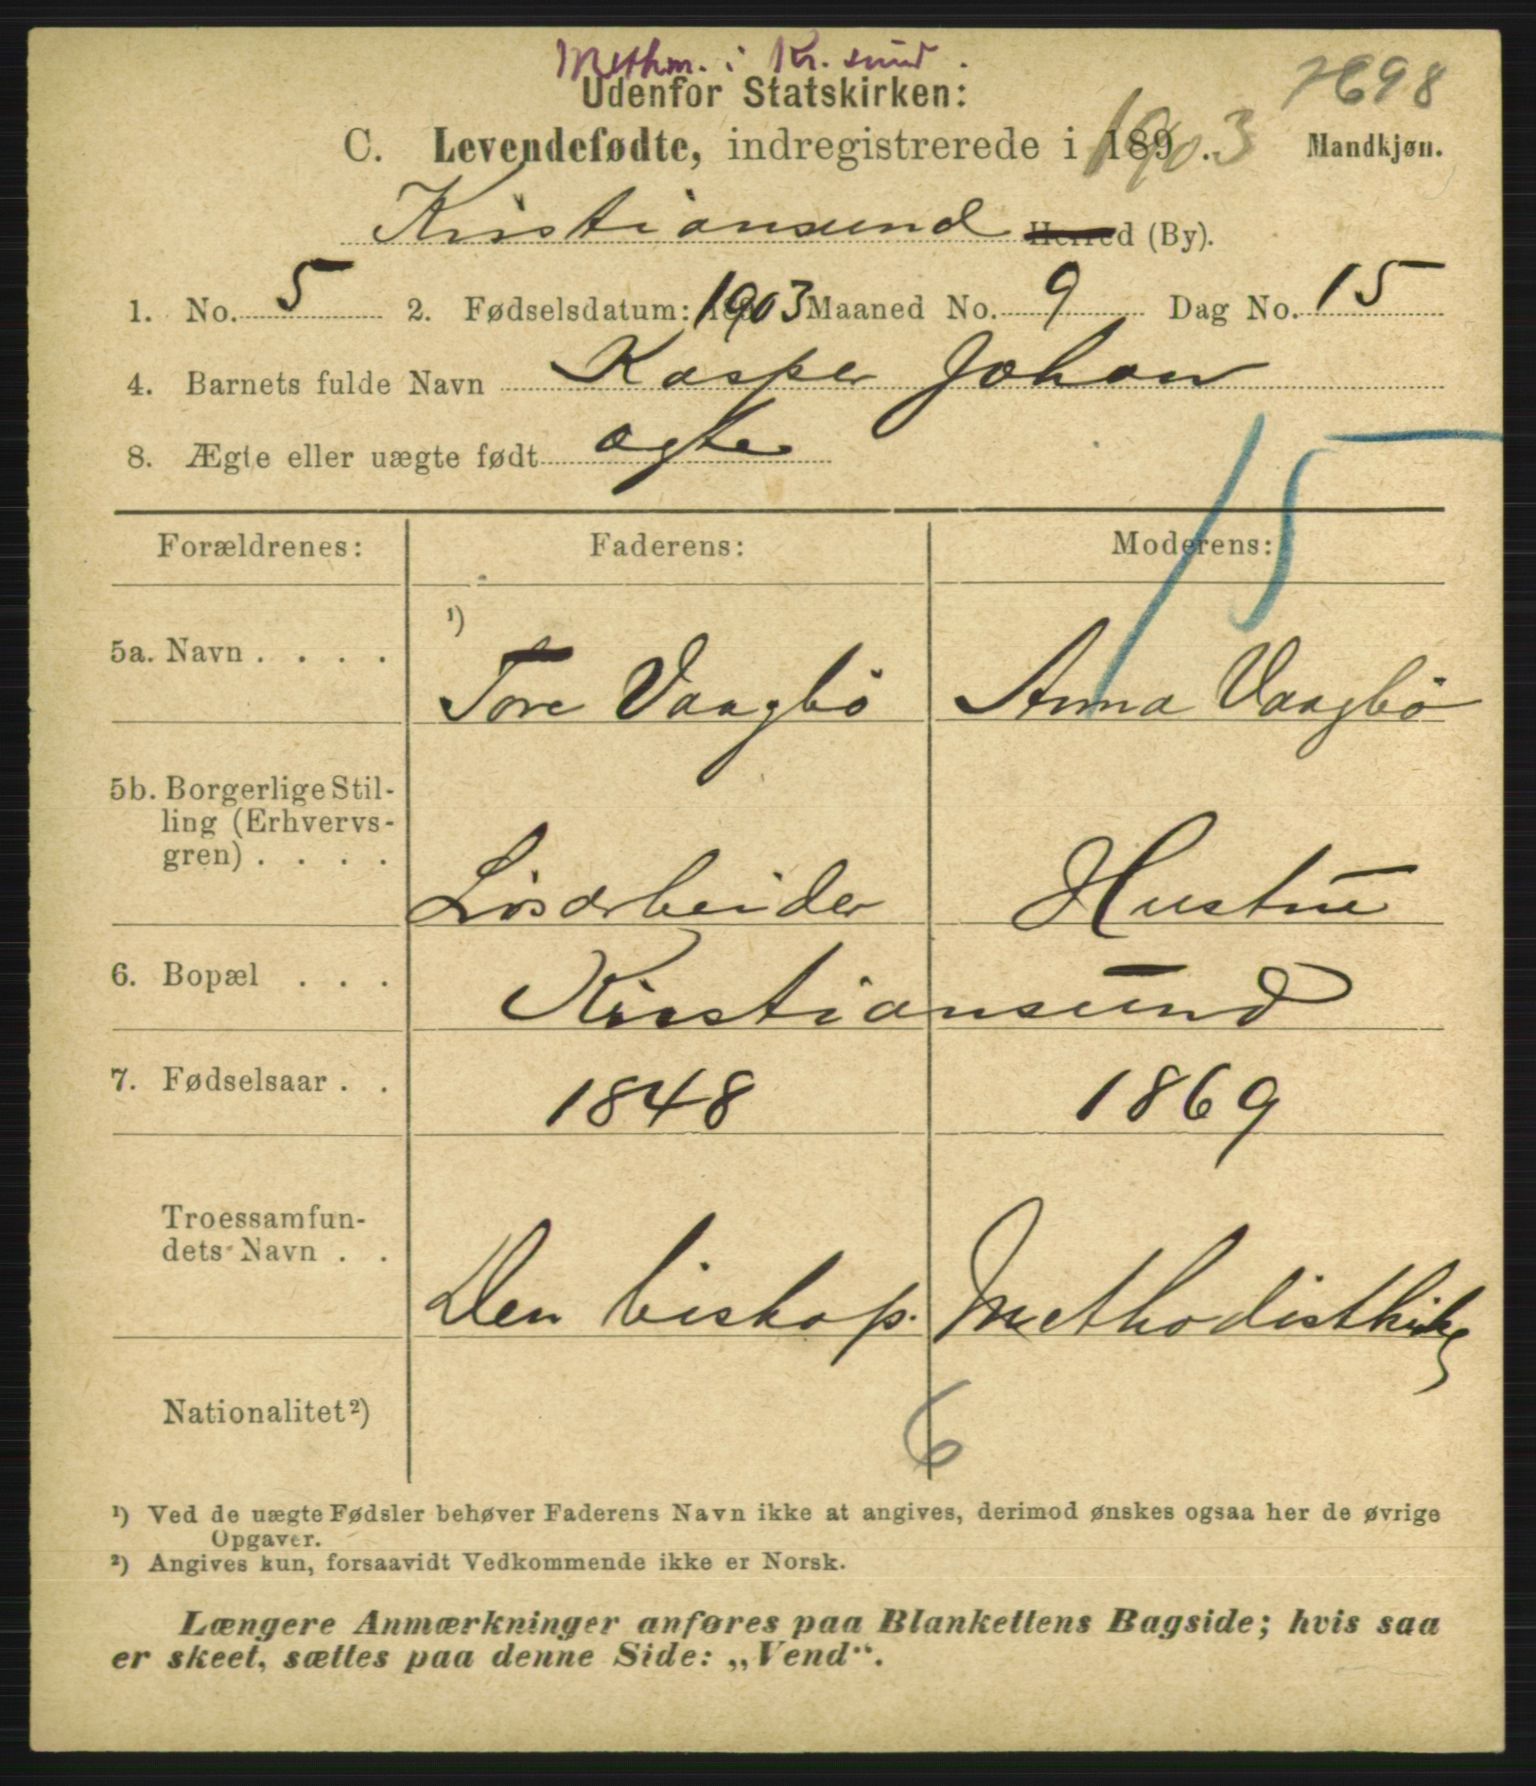 Methm. i Kr. sund.
7698
Udenfor Statskirken:
C. Levendefødte, indregistrerede i 189 . 1903 Mandkjøn.
Kristiansund Herred (By).
1. No. 5 2. Fødselsdatum: 1903 Maaned No. 9 Dag No. 15
4. Barnets fulde Navn Kasper Johan
8. Ægte eller uægte født ægte
15
Forældrenes: Faderens: Moderens:
¹)
5a. Navn . . . . Tore Vaagbö Anna Vaagbö
5b. Borgerlige Stil-
ling (Erhvervs-
gren) . . . . Løsarbeider Hustru
6. Bopæl . . . Kristiansund
7. Fødselsaar . . 1848 1869
Troessamfun-
dets Navn . . Den biskop. Methodistkirke
Nationalitet ²)
6
¹) Ved de uægte Fødsler behøver Faderens Navn ikke at angives, derimod ønskes ogsaa her de øvrige
Opgaver.
²) Angives kun, forsaavidt Vedkommende ikke er Norsk.
Længere Anmærkninger anføres paa Blankettens Bagside; hvis saa
er skeet, sættes paa denne Side: „Vend“.